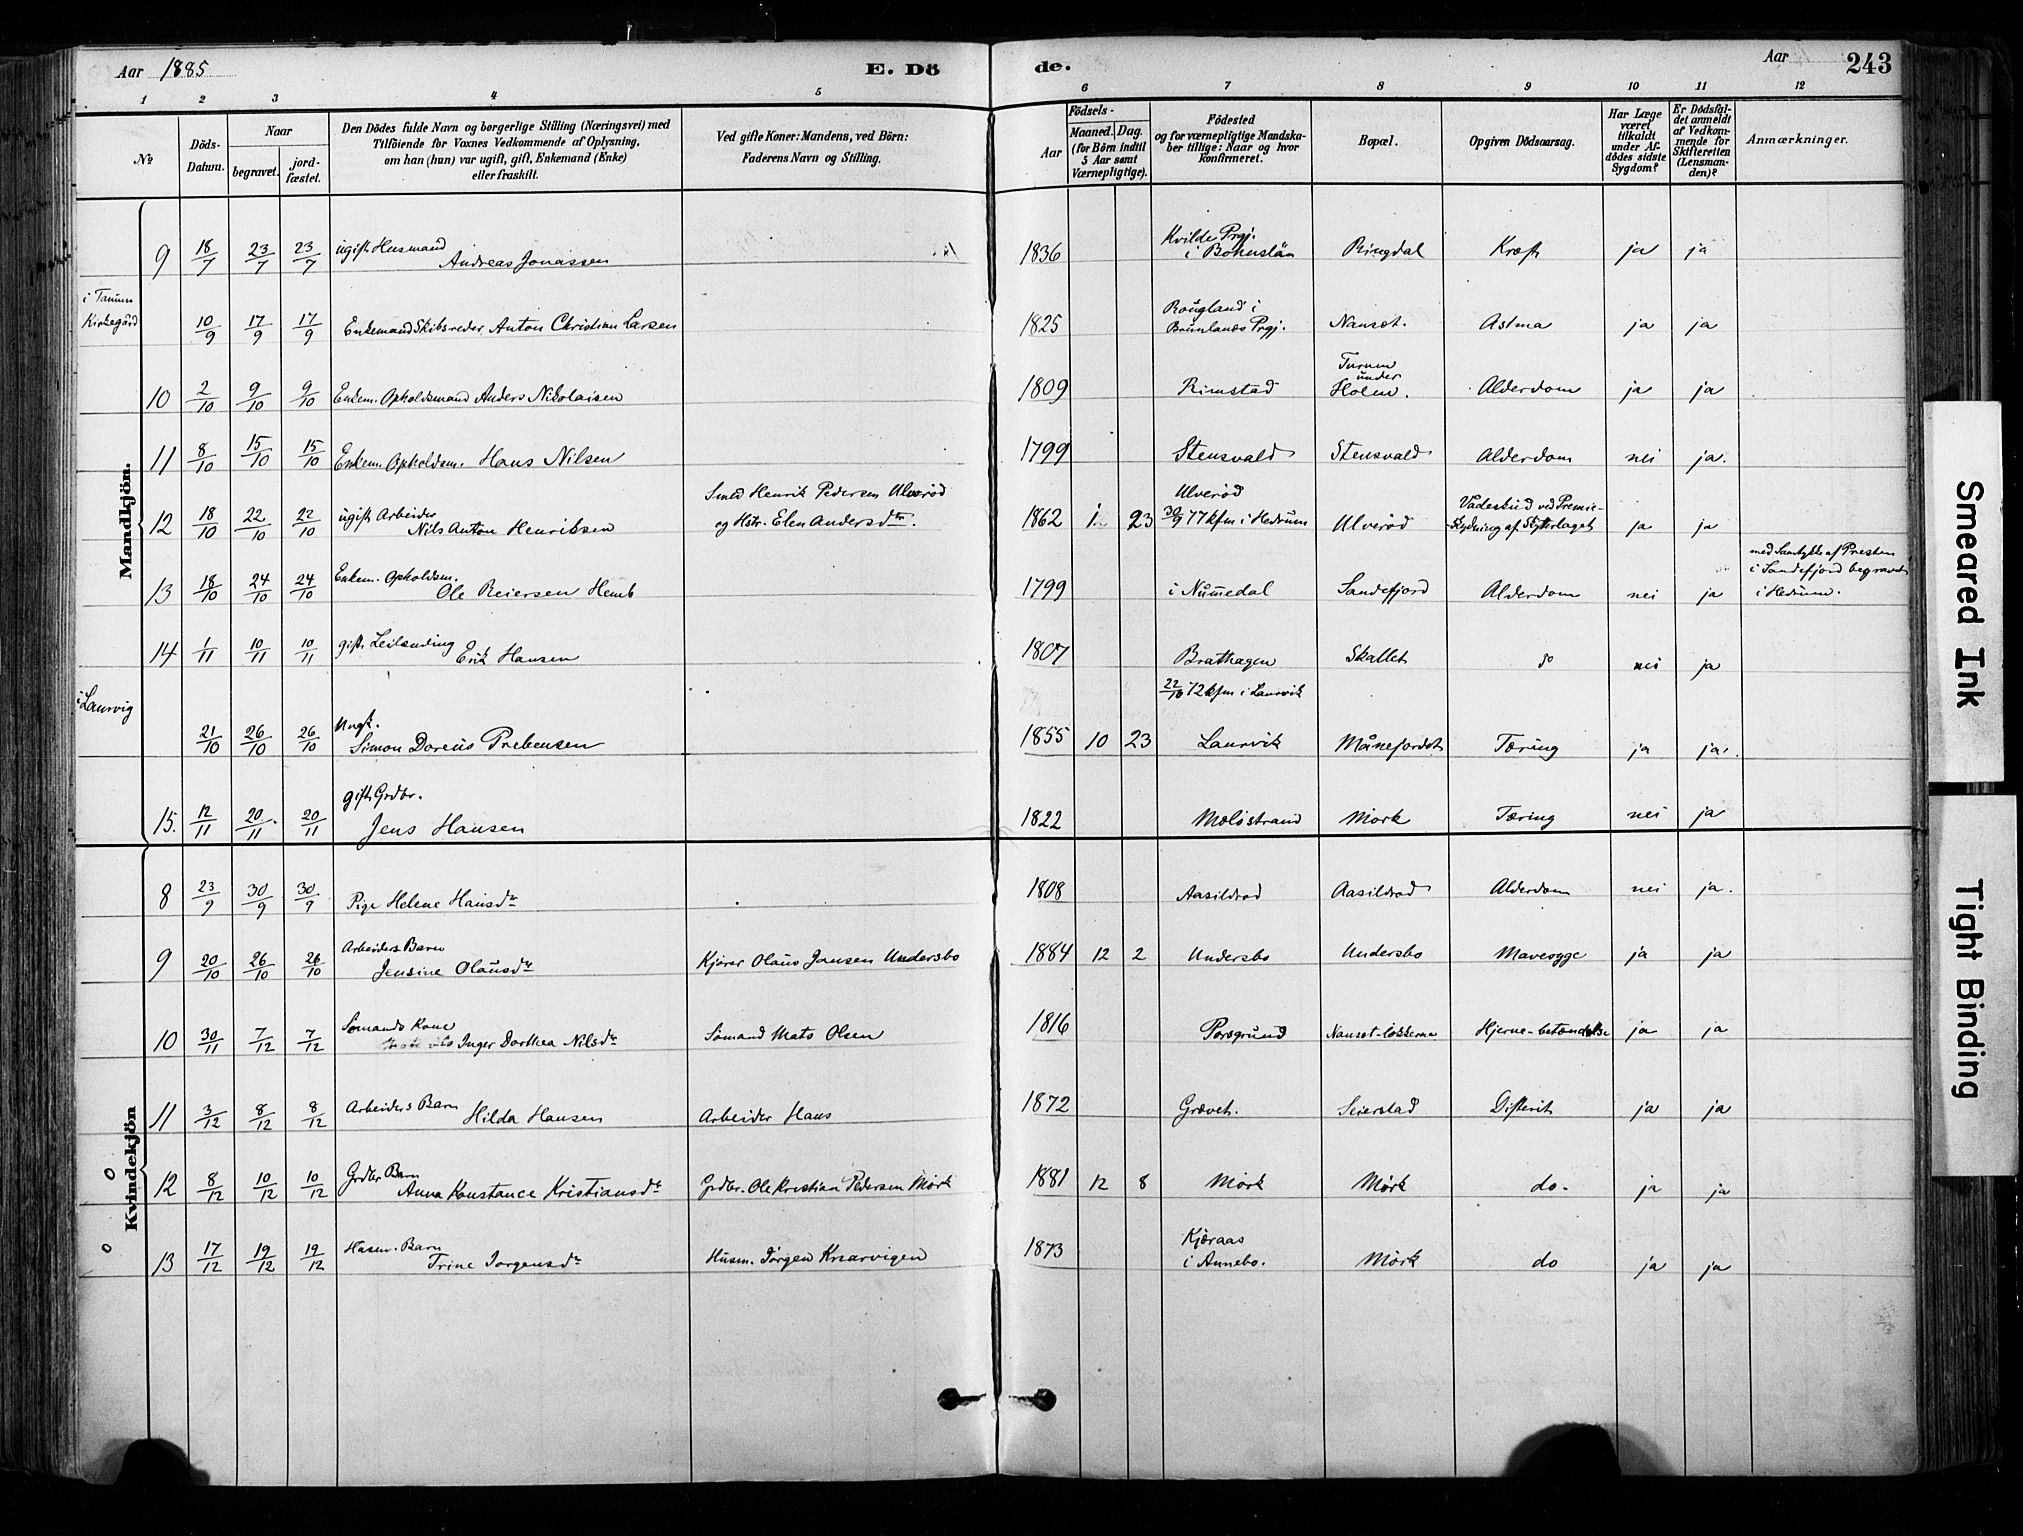 Aar 1885
E. Dö
de.
Aar
243
1 2 3 4 5 6 7 8 9 10 11 12
No
Döds-
Datum.
Naar
begravet.
jord-
fæstet.
Den Dödes fulde Navn og borgerlige Stilling (Næringsvei) med
Tilföiende for Voxnes Vedkommende af Oplysning,
om han (hun) var ugift, gift, Enkemand (Enke)
eller fraskilt.
Ved gifte Koner: Mandens, ved Börn:
Faderens Navn og Stilling.
Födsels-
Aar
Maaned. Dag.
(for Börn indtil
5 Aar samt
Værnepligtige).
Födested
og for værnepligtige Mandska-
ber tillige: Naar og hvor
Konfirmeret.
Bopæl.
Opgiven Dödsaarsag.
Har Læge
været
tilkaldt
under Af-
dödes sidste
Sygdom?
Er Dödsfal-
det anmeldt
af Vedkom-
mende for
Skifteretten
(Lensman-
den)?
Anmærkninger.
Mandkjön.
9 18/7 23/7 23/7 ugift Husmand
Andreas Jonassen
1836 Kvilde Prgj.
i Bohuslän Ringdal Kræft ja ja
i Tanum
Kirkegård
10/9 17/9 17/9 Enkemand Skibsreder Anton Christian Larsen
1825 Rougland i
Brunlanes Prgj. Nanset. Astma ja ja
10 2/10 9/10 9/10 Enkem. Opholdsmand Anders Nikolaisen
1809 Rimstad Turum
under
Holm. Alderdom ja ja
11 8/10 15/10 15/10 Enkem. Opholdsm. Hans Nilsen
1799 Stensvald Stensvald Alderdom nei ja.
12 18/10 22/10 22/10 ugift Arbeider
Nils Anton Henriksen
Smed Henrik Pedersen Ulveröd
og Hstr. Elen Andersdtr.
1862 1 23 Ulveröd
30/9 77 kfm i Hedrum Ulveröd Vadeskud ved Premie-
Skydning af Skytterlaget ja ja
13 18/10 24/10 24/10 Enkem. Opholdsm.
Ole Reiersen Hemb
1799 i Numedal Sandefjord Alderdom nei ja
med Samtykke af Presten
i Sandefjord begravet
i Hedrum.
14 1/11 10/11 10/11 gift Leilending
Erik Hansen
1807 Brathagen Skallet do nei ja
i Laurvig
21/10 26/10 26/10 Ungk.
Simon Doreus Prebensen
1855 10 23 22/10 72 kfm i Laurvik
Laurvik Månejordet Tæring ja ja.
15. 12/11 20/11 20/11 gift Grdbr.
Jens Hansen
1822 Melöstrand Mörk Tæring nei ja
Kvindekjön
8 23/9 30/9 30/9 Pige Helene Hansdtr
1808 Aasildrød Aasildrød Alderdom nei ja.
9 20/10 26/10 26/10 Arbeiders Barn
Jensine Olausdtr
Kjörer Olaus Jansen Undersbo
1884 12 2 Undersbo Undersbo Mavesyge ja ja
10 30/11 7/12 7/12 Sömands Kone
Inger Dorthea Nilsdtr
Sömand Mats Olsen
1816 Porsgrund Nanset-løkkerne Hjerne-betændelse ja ja
11 3/12 8/12 8/12 Arbeiders Barn
Hilda Hansen
Arbeider Hans
1872 Grævet. Seierstad Difterit ja ja
0
12 8/12 10/12 10/12 Grdbr Barn
Anna Konstance Kristiansdtr
Grdbr. Ole Kristian Pedersen Mørk
1881 12 8 Mørk Mørk do. ja ja
0
13 17/12 19/12 19/12 Husm. Barn
Trine Jørgensdtr
Husm. Jørgen Knarvigen
1873 Kjæraas
i Annebo. Mørk do ja ja
Smeared Ink
Tight Binding